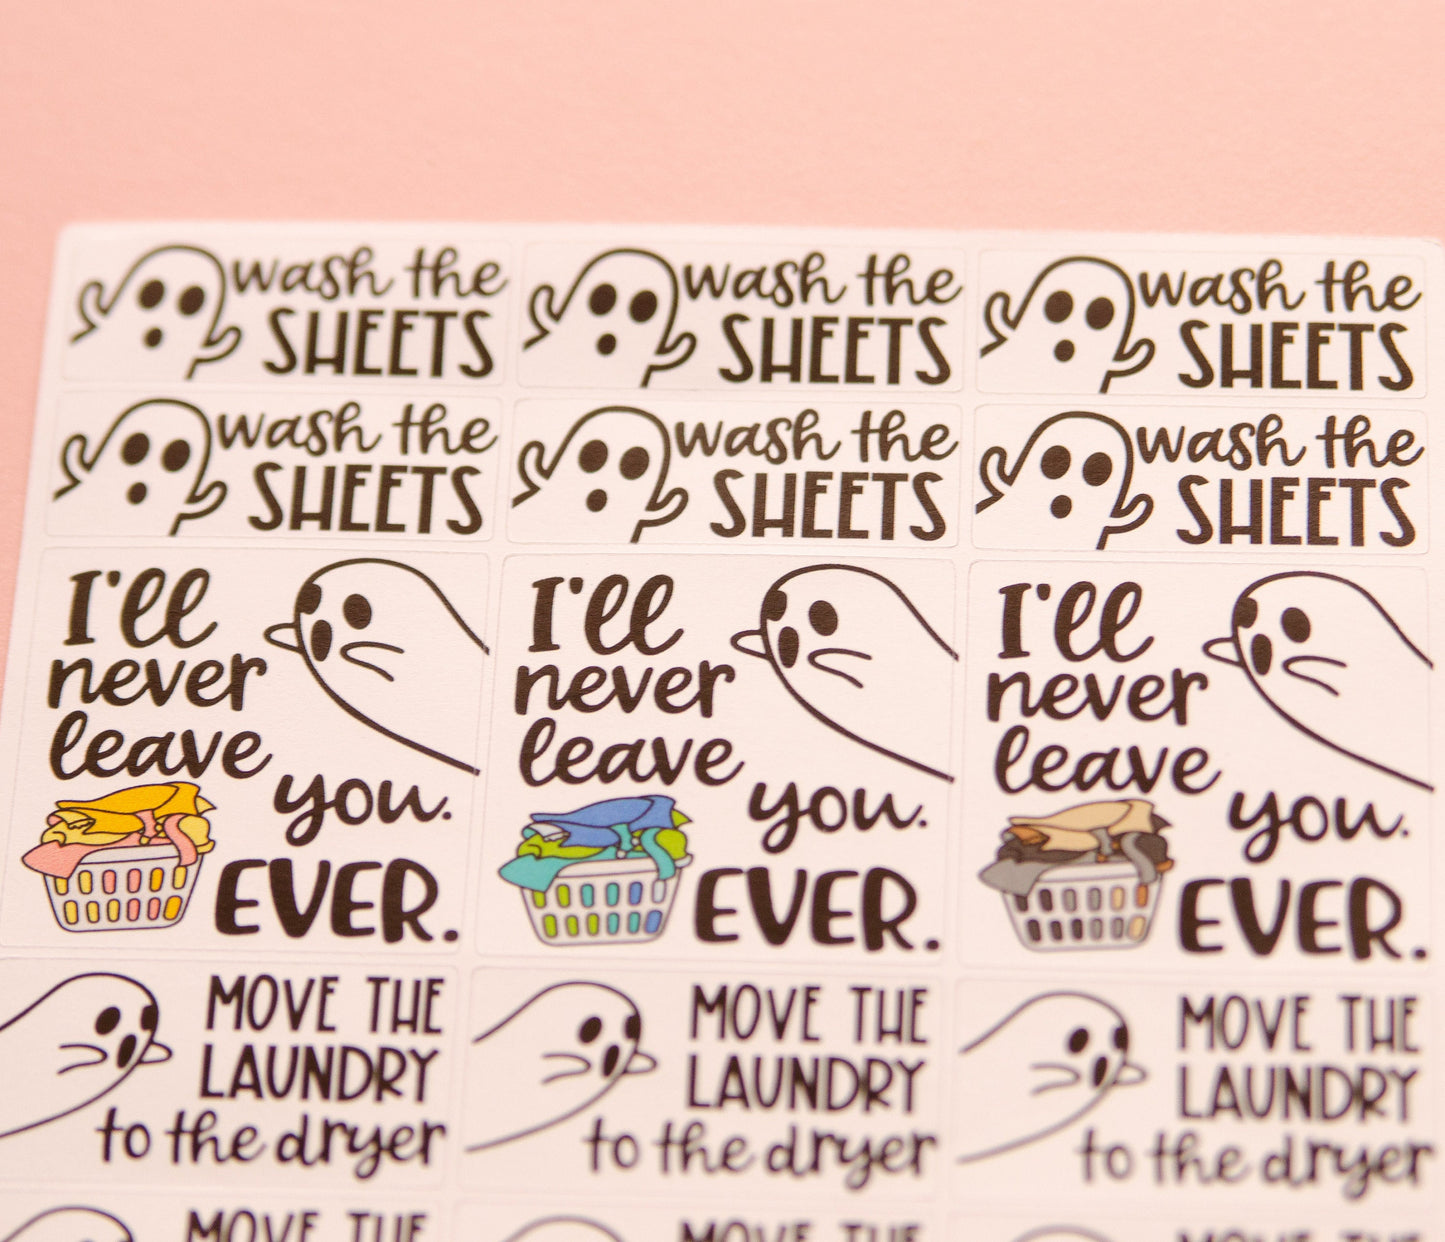 wash the
SHEETS
wash the
SHEETS
wash the
SHEETS
wash the
SHEETS
wash the
SHEETS
wash the
SHEETS
I'll
never
leave
you.
EVER.
I'll
never
leave
you.
EVER.
I'll
never
leave
you.
EVER.
MOVE THE
LAUNDRY
to the dryer
MOVE THE
LAUNDRY
to the dryer
MOVE THE
LAUNDRY
to the dryer
MOVE THE
MOVE THE
MOVE THE